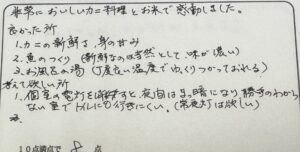 非常においしいカニ料理とお米で感動しました。
良かった所
1.カニの新鮮さ,身の甘み
2.魚のつくり(新鮮なのは当然として,味が濃い)
3.お風呂の湯(丁度良い温度でゆっくりつかっておれる)
考えて欲しい所
1.個室の電灯を消すと,夜目はまっ暗になり勝手のわから
ない室でトイレにも行きにくい。(常夜灯は欲しい)
10点満点で 8 点